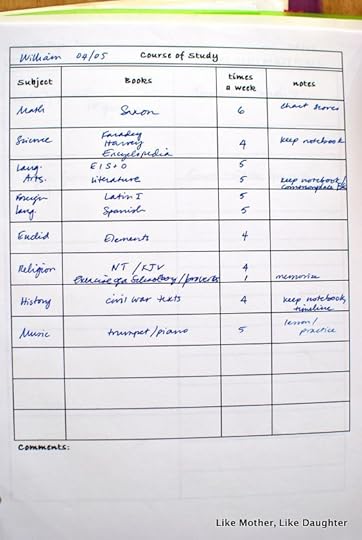 William 04/05 Course of Study
Subject Books times a week notes
Math Saxon 6 chart scores
Science Faraday 4 keep notebook
Harvey
Encyclopedia
Lang. EIS+O 5
Arts. Literature 5 keep notebook/
commonplace Bk
Foreign Latin I 5
Lang. Spanish 5
Euclid Elements 4
Religion NT / KJV 4
Exercise of a Schoolboy / proverbs 1 memorize
History civil war texts 4 keep notebook,
timeline
Music trumpet/piano 5 lesson/
practice
Comments:
Like Mother, Like Daughter